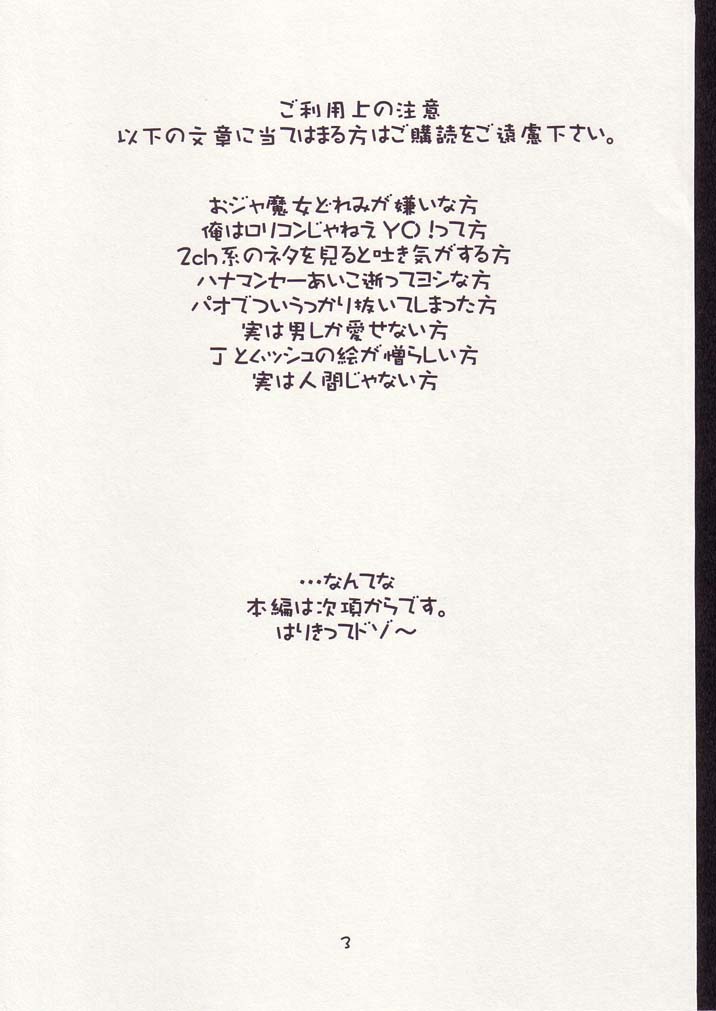 ご利用上の注意
以下の文章に当てはまる方はご購読をご遠慮下さい。
おジャ魔女どれみが嫌いな方
俺はロリコンじゃねえYO！って方
2ch系のネタを見ると吐き気がする方
ハナマンセーあいこ逝ってヨシな方
パオでついうっかり抜いてしまった方
実は男しか愛せない方
丁とムッシュの絵が憎らしい方
実は人間じゃない方
…なんてな
本編は次項からです。
はりきってドゾ～
3